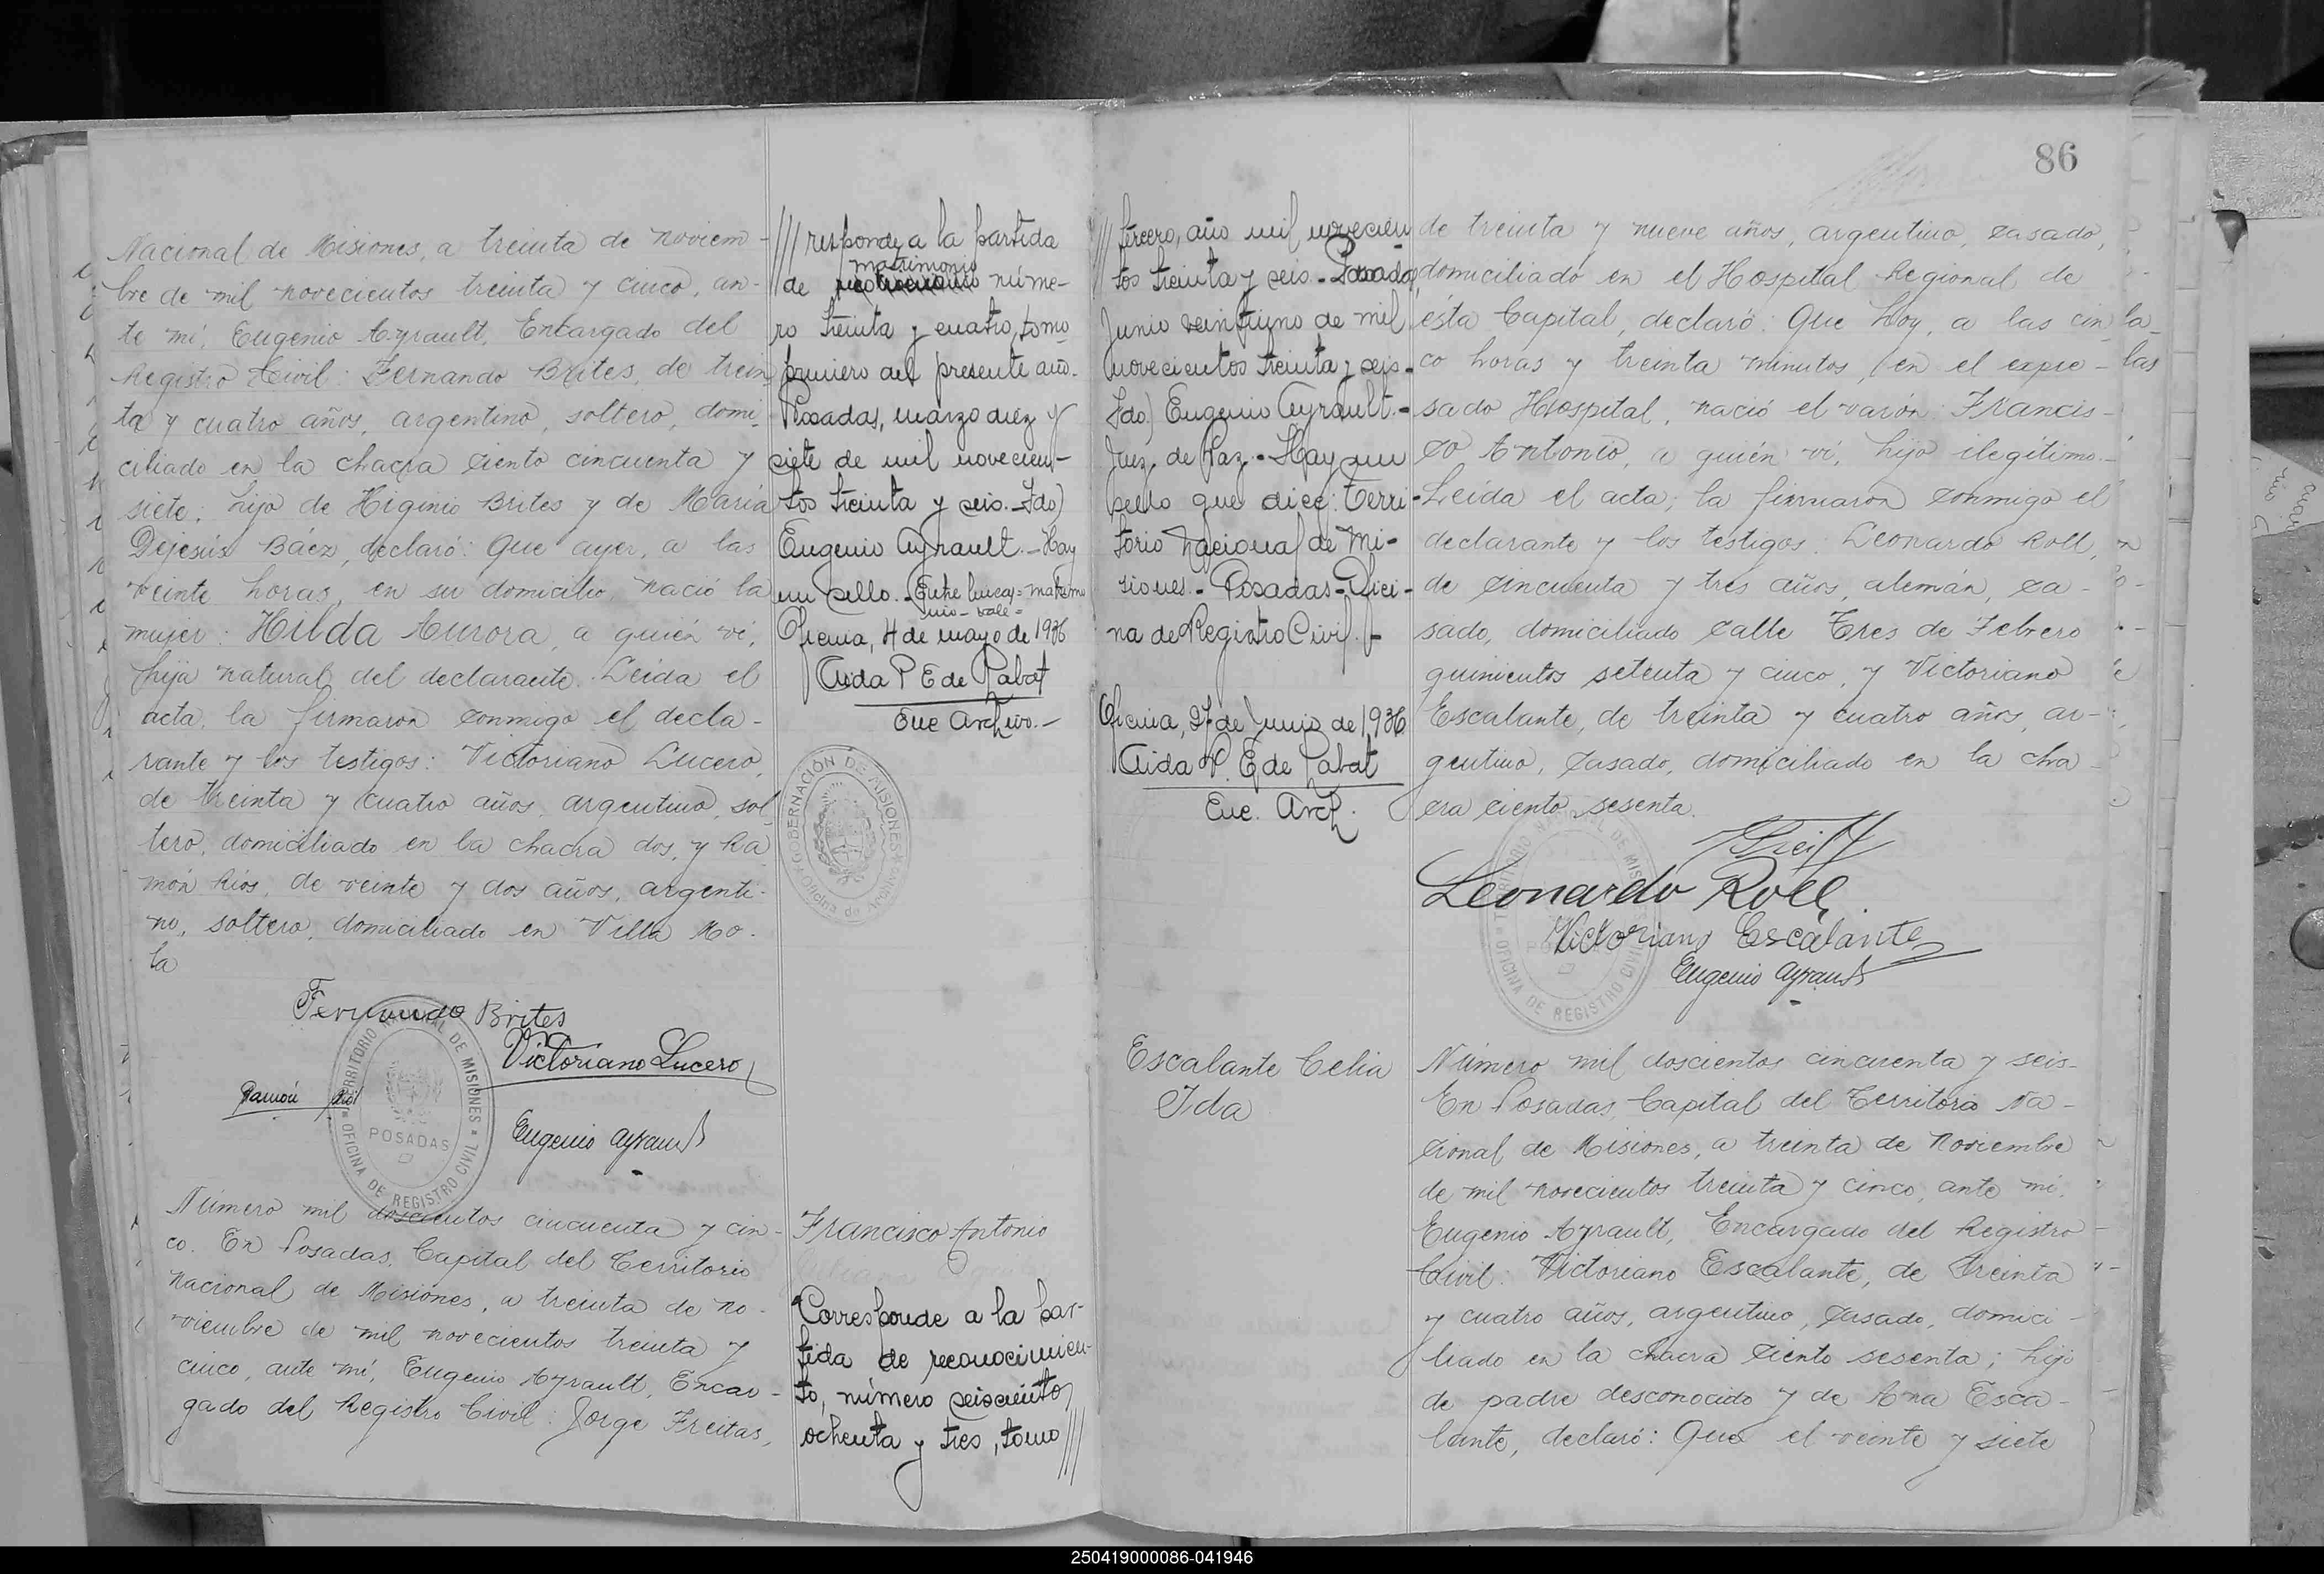 Nacional de Misiones, a treinta de noviem-
bre de mil novecientos treinta y cinco, an-
te mí, Eugenio Ayrault, Encargado del
Registro Civil: Fernando Brites, de trein
ta y cuatro años, argentino, soltero, domi-
ciliado en la chacra ciento cincuenta y
siete; hijo de Higinio Brites y de María
Dejesús Báez, declaró: Que ayer, a las
veinte horas, en su domicilio, nació la
mujer: Hilda Aurora, a quién vi,
hija natural del declarante. Leida el
acta, la firmaron conmigo el decla-
rante y los testigos: Victoriano Lucero,
de treinta y cuatro años, argentino, sol
tero, domiciliado en la chacra dos, y Ra
món Ríos, de veinte y dos años, argenti-
no, soltero, domiciliado en Villa Mo-
la
Fernando Brites
Victoriano Lucero
Ramón Rios
Eugenio Ayrault
TERRITORIO NACIONAL DE MISIONES
POSADAS
OFICINA DE REGISTRO CIVIL
Número mil doscientos cincuenta y cin-
co. En Posadas, Capital del Territorio
Nacional de Misiones, a treinta de no-
viembre de mil novecientos treinta y
cinco, ante mí, Eugenio Ayrault, Encar-
gado del Registro Civil: Jorge Freitas,
/// responde a la partida
matrimonio
de núme-
ro treinta y cuatro, tomo
primero del presente año.
Posadas, marzo diez y
siete de mil novecien-
tos treinta y seis.-Fdo)
Eugenio Ayrault.-Hay
un sello.-Entre lineas=matrimo
nio-vale=
Oficina, 4 de mayo de 1936
Aida P E de Rabat
Enc Archivo.-
GOBERNACIÓN DE MISIONES
Oficina de Archivo
Francisco Antonio
Corresponde a la par-
tida de reconocimien-
to, número seiscientos
ochenta y tres, tomo ///
/// tercero, año mil novecien
tos treinta y seis.-Posadas,
Junio veintiuno de mil
novecientos treinta y seis.-
Fdo) Eugenio Ayrault.-
Juez de Paz.-Hay un
sello que dice: Terri-
torio Nacional de Mi-
siones.-Posadas-Ofici-
na de Registro Civil.-
Oficina, 27 de Junio de 1936
Aida P. E de Rabat
Enc. Arch.
Escalante Celia
Ida
86
de treinta y nueve años, argentino, casado,
domiciliado en el Hospital Regional de
ésta Capital, declaró: Que hoy, a las cin
co horas y treinta minutos, en el expre-
sado Hospital, nació el varón: Francis-
co Antonio, a quién vi, hijo ilegítimo.-
Leida el acta, la firmaron conmigo el
declarante y los testigos: Leonardo Roll,
de cincuenta y tres años, alemán, ca-
sado, domiciliado calle Tres de Febrero
quinientos setenta y cinco, y Victoriano
Escalante, de treinta y cuatro años, ar-
gentino, casado, domiciliado en la cha-
cra ciento sesenta.
Leonardo Roll
Victoriano Escalante
Eugenio Ayrault
TERRITORIO NACIONAL DE MISIONES
OFICINA DE REGISTRO CIVIL
Número mil doscientos cincuenta y seis-
En Posadas, Capital del Territorio Na-
cional de Misiones, a treinta de Noviembre
de mil novecientos treinta y cinco, ante mí,
Eugenio Ayrault, Encargado del Registro
Civil: Victoriano Escalante, de treinta
y cuatro años, argentino, casado, domici-
liado en la chacra ciento sesenta; hijo
de padre desconocido y de Ana Esca-
lante, declaró: Que el veinte y siete
250419000086-041946